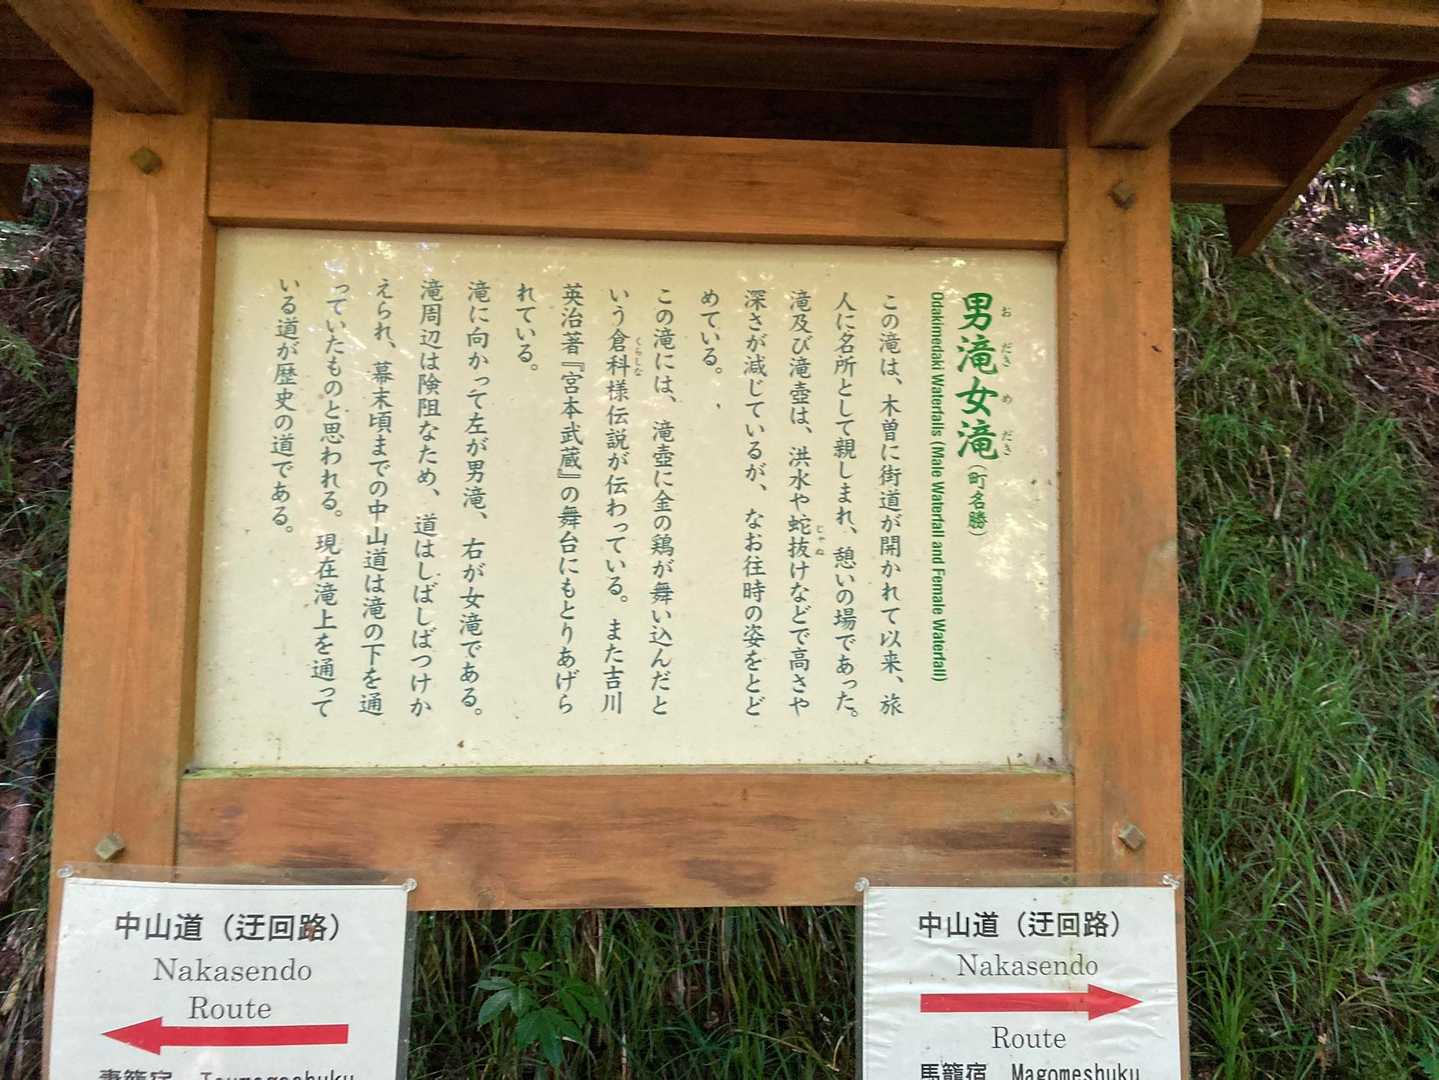 男滝女滝（町名勝）
お だき め だき
Odakimedaki Waterfalls (Male Waterfall and Female Waterfall)
この滝は、木曽に街道が開かれて以来、旅
人に名所として親しまれ、憩いの場であった。
滝及び滝壺は、洪水や蛇抜けなどで高さや
じゃぬ
深さが減じているが、なお往時の姿をとど
めている。
この滝には、滝壺に金の鶏が舞い込んだと
いう倉科様伝説が伝わっている。また吉川
くらしな
英治著『宮本武蔵』の舞台にもとりあげら
れている。
滝に向かって左が男滝、右が女滝である。
滝周辺は険阻なため、道はしばしばつけか
えられ、幕末頃までの中山道は滝の下を通
っていたものと思われる。現在滝上を通って
いる道が歴史の道である。
中山道（迂回路）
Nakasendo
Route
妻籠宿 Tsumagoshuku
中山道（迂回路）
Nakasendo
Route
馬籠宿 Magomeshuku